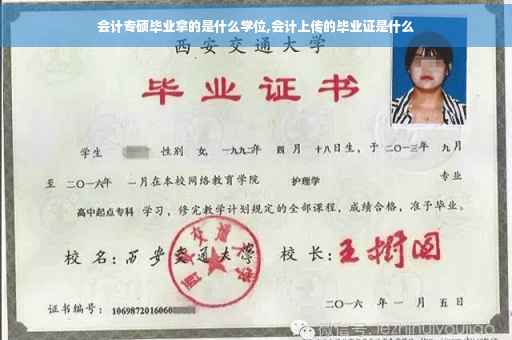 会计专硕毕业拿的是什么学位,会计上传的毕业证是什么
西安交通大学
毕业证书
学生 性别 女, 一九九二年 四月 十八日生, 于二〇一三年 九月
至 二〇一六年 一月在本校网络教育学院 护理学 专业
高中起点专科 学习, 修完教学计划规定的全部课程, 成绩合格, 准予毕业。
校名: 西安交通大学 校长: 王树国
西安交通大学
证书编号: 1069872016060
二〇一六年 一月 五日
微信号: jezhihuiyoujiao